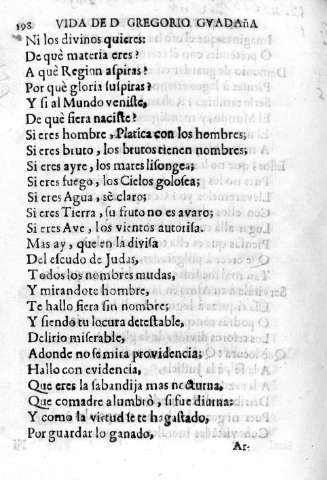 198 VIDA DE D GREGORIO GVADAñA
Ni los divinos quieres:
De què materia eres?
A què Region aspiras?
Por què gloria suspiras?
Y si al Mundo veniste,
De què fiera naciste?
Si eres hombre, Platica con los hombres;
Si eres bruto, los brutos tienen nombres;
Si eres ayre, los mares lisongea;
Si eres fuego, los Cielos golosea;
Si eres Agua, sè claro;
Si eres Tierra, su fruto no es avaro;
Si eres Ave, los vientos autorisa.
Mas ay, que en la divisa
Del escudo de Judas,
Todos los nombres mudas,
Y mirandote hombre,
Te hallo fiera sin nombre;
Y siendo tu locura detestable,
Delirio miserable,
Adonde no se mira providencia;
Hallo con evidencia,
Que eres la sabandija mas nocturna,
Que comadre alumbrò, si fue diurna:
Y como la virtud se te ha gastado,
Por guardar lo ganado,
Ar-